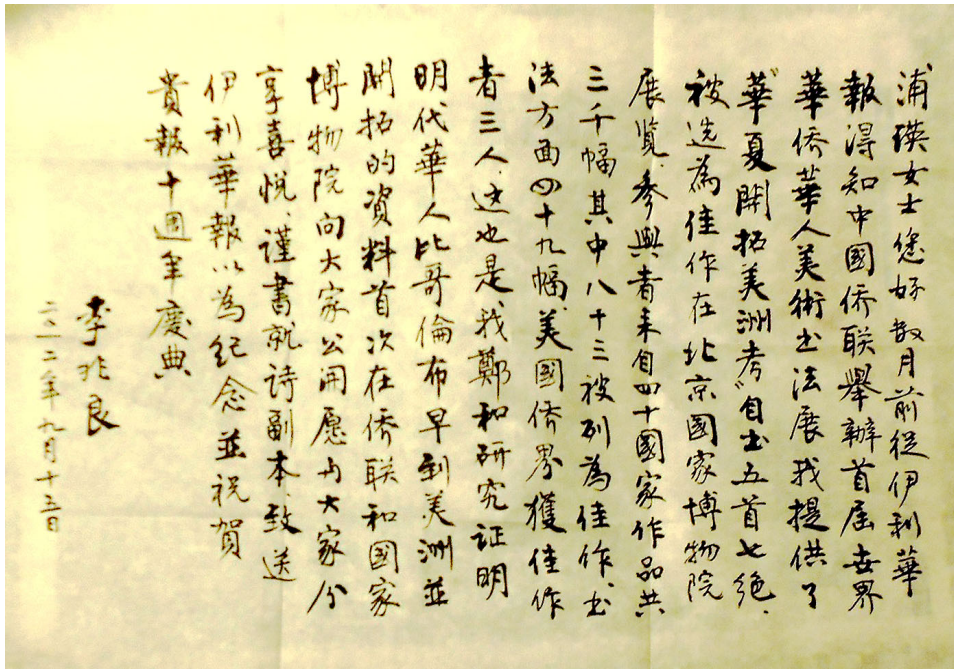 浦瑛女士您好數月前從伊利華
報得知中國侨联舉辦首屆世界
華侨華人美術书法展我提供了
"華夏開拓美洲考"自书五首七绝、
被选為佳作在北京國家博物院
展览、参與者来自四十國家作品共
三千幅其中八十三被列為佳作、书
法方面四十九幅、美國侨界獲佳作
者三人、这也是我鄭和研究证明
明代華人比哥倫布早到美洲並
開拓的資料首次在侨联和國家
博物院向大家公開愿与大家分
享喜悦、谨書就詩副本、致送
伊利華報以為纪念並祝賀
貴報十週年慶典
李兆良
二〇一二年九月十五日